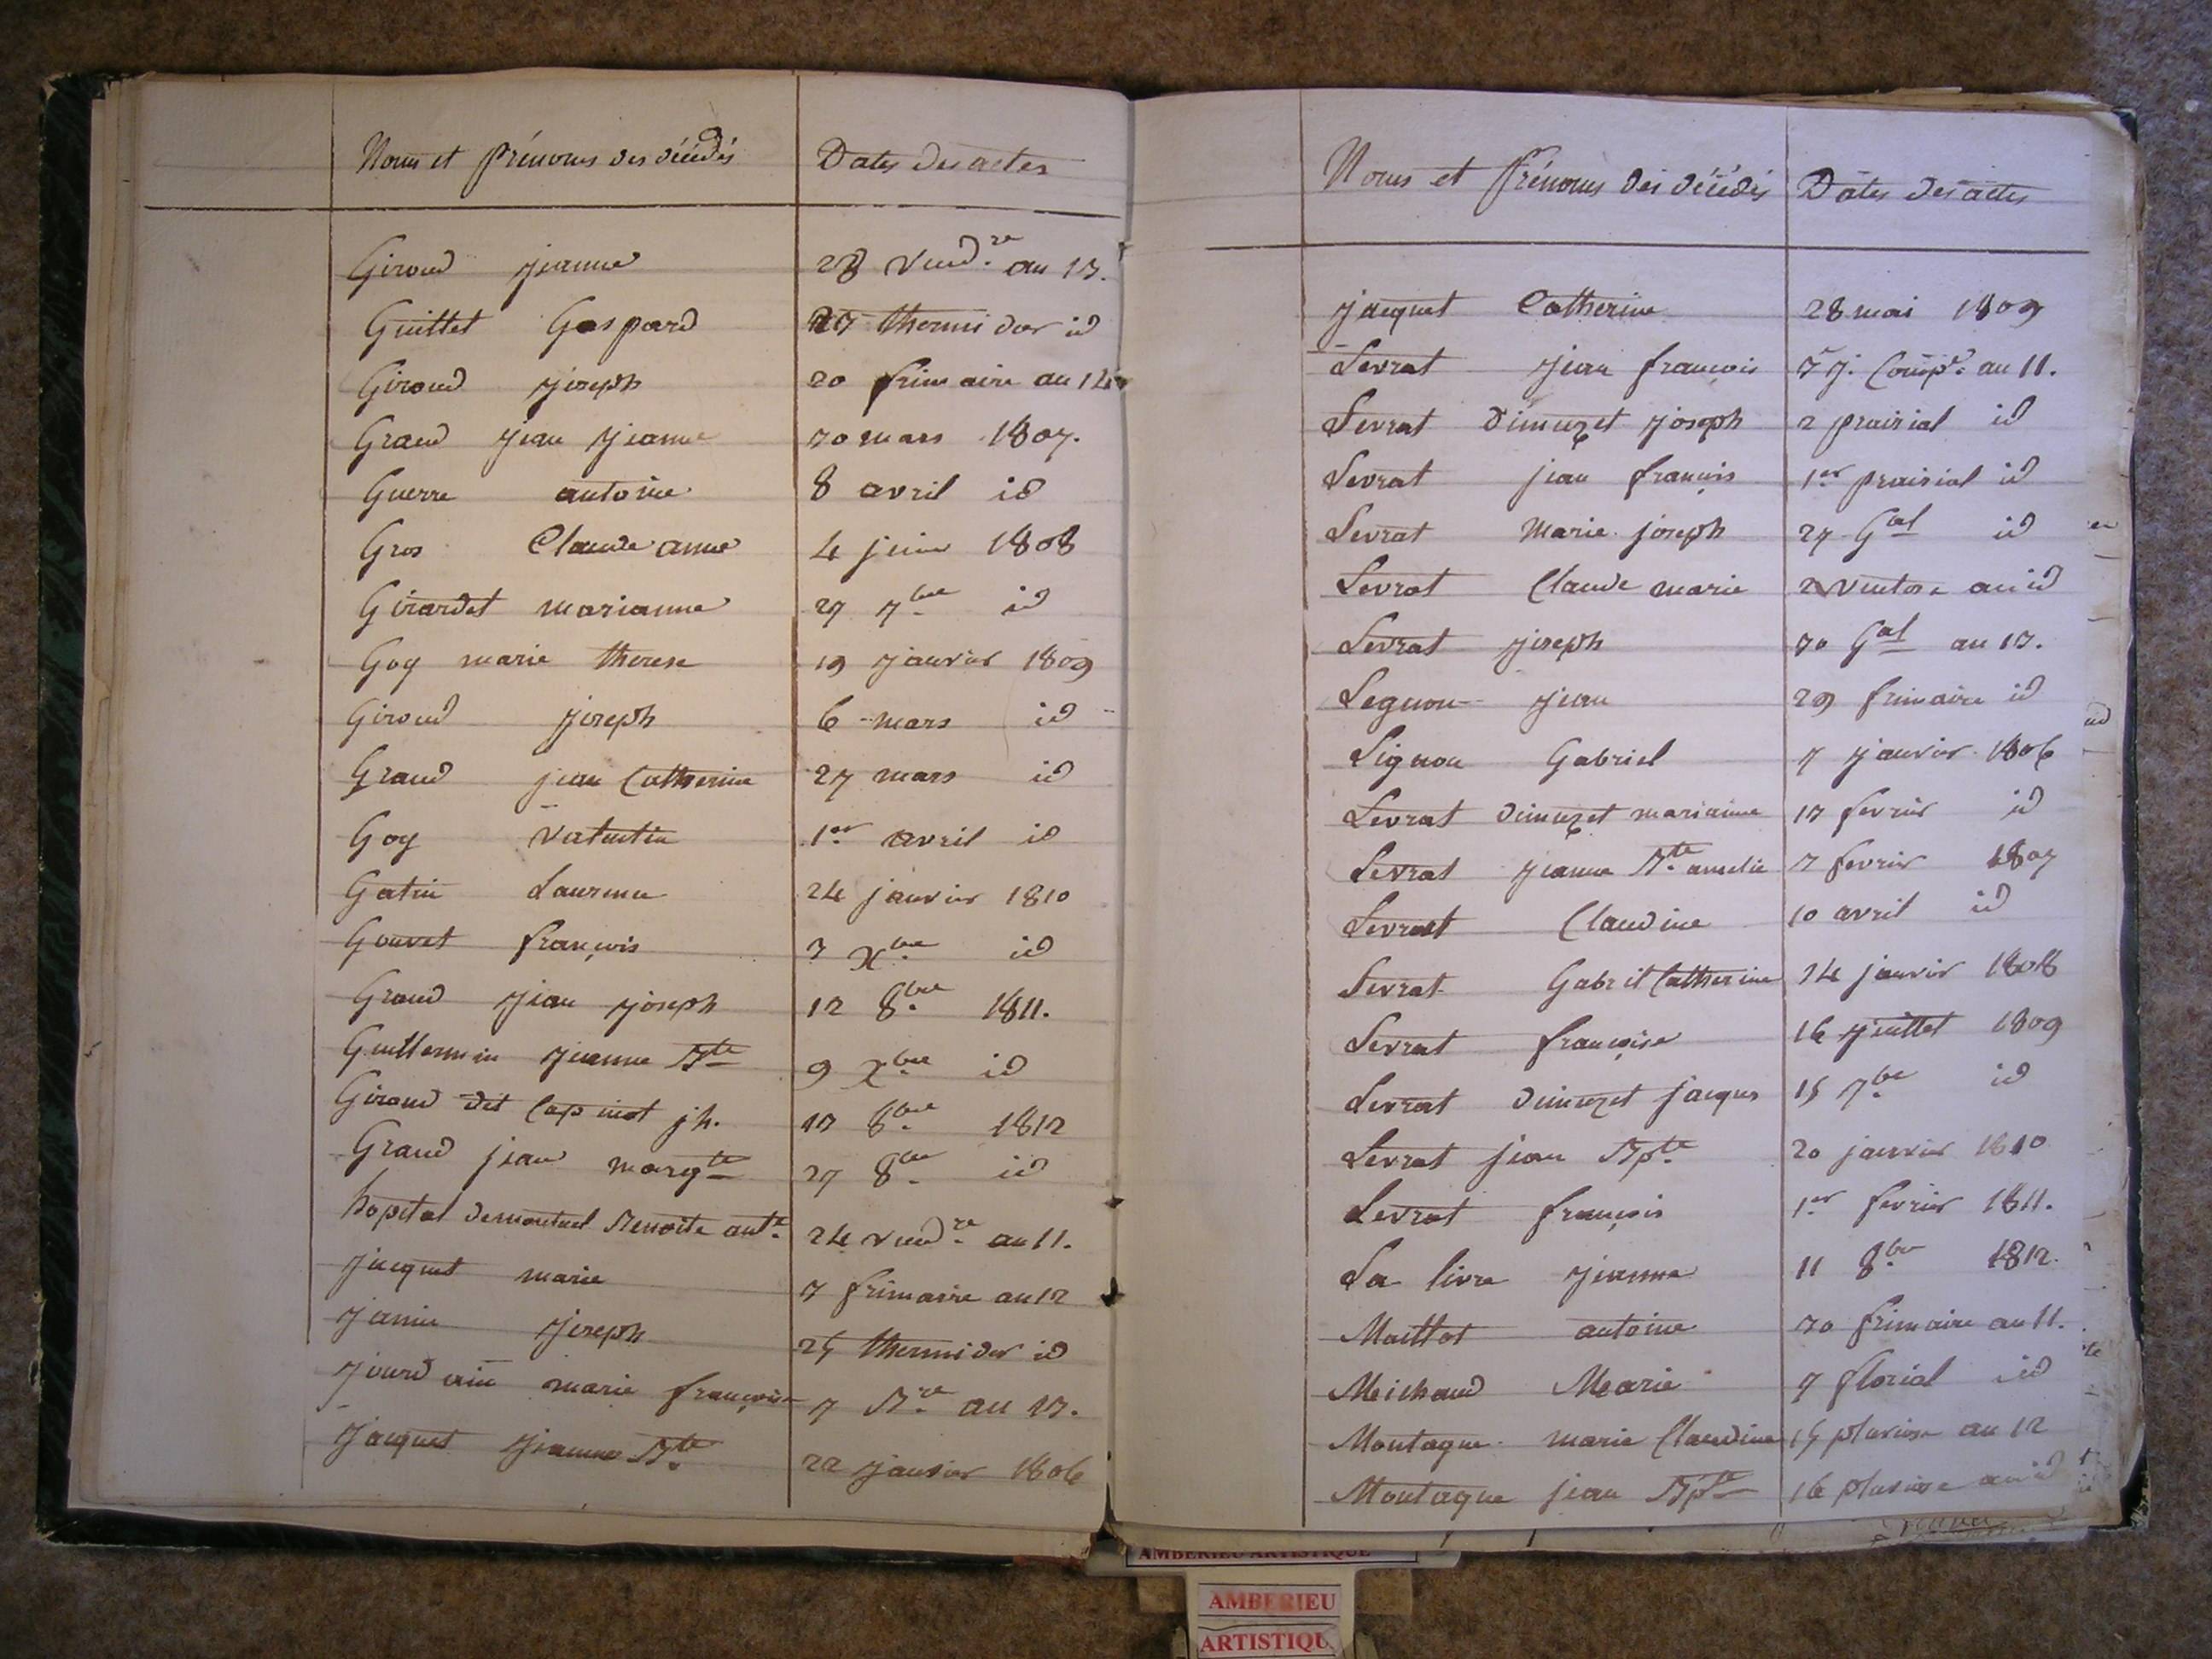 Noms et Prénoms des décédés Dates des actes
Giroud jeanne 28 Vend.re an 13.
Guillet Gaspard 25 thermidor id
Giroud joseph 20 frimaire an 14
Grand jean jeanne 30 mars 1807.
Guerre antoine 8 avril id
Gros Claude anne 4 juin 1808
Girardet marianne 27 7bre id
Goy marie therese 19 janvier 1809
Giroud joseph 6 mars id
Grand jean Catherine 27 mars id
Goy Valentin 1er avril id
Gatin Laurence 24 janvier 1810
Gouvet françois 3 Xbre id
Grand jean joseph 12 8bre 1811.
Guillermin jeanne Bte 9 Xbre id
Giroud dit Capinot jh. 13 8bre 1812
Grand jean margte 27 8bre id
hopital Benoite ante 24 vend.re an 11.
jacquet marie 7 frimaire an 12
janin joseph 25 thermidor id
jourdain marie françoise 7 B.re an 13.
jacquet jeanne Bte 22 janvier 1806
Noms et Prénoms des décédés Dates des actes
jacquet Catherine 28 mai 1809
Levrat jean francois j. Comp.re an 11.
Levrat Dimuzet joseph 2 prairial id
Levrat jean françois 1er prairial id
Levrat Marie joseph 27 Gal id
Levrat Claude marie 2 Ventose an id
Levrat joseph 30 Gal an 13.
Legnon jean 29 frimaire id
Lignon Gabriel 7 janvier 1806
Levrat Dimuzet marianne 13 fevrier id
Levrat jeanne Bte amelie 3 fevrier 1807
Levrat Claudine 10 avril id
Levrat Gabriel Catherine 14 janvier 1808
Levrat françoise 16 juillet 1809
Levrat Dimuzet jacques 15 7bre id
Levrat jean Bpte 20 janvier 1810
Levrat françois 1er fevrier 1811.
La livre jeanne 11 8bre 1812.
Maillot antoine 30 frimaire an 11.
Meichaud Marie 7 floreal id
Montagne marie Claudine 15 pluviose an 12
Montagne jean Bpte 16 pluviose an id
AMBERIEU ARTISTIQUE
AMBERIEU
ARTISTIQU